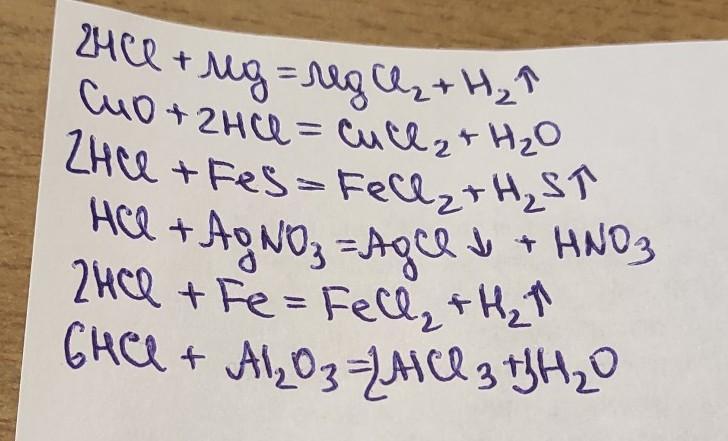 2HCl + Mg = MgCl₂ + H₂↑
CuO + 2HCl = CuCl₂ + H₂O
2HCl + FeS = FeCl₂ + H₂S↑
HCl + AgNO₃ = AgCl↓ + HNO₃
2HCl + Fe = FeCl₂ + H₂↑
6HCl + Al₂O₃ = 2AlCl₃ + 3H₂O